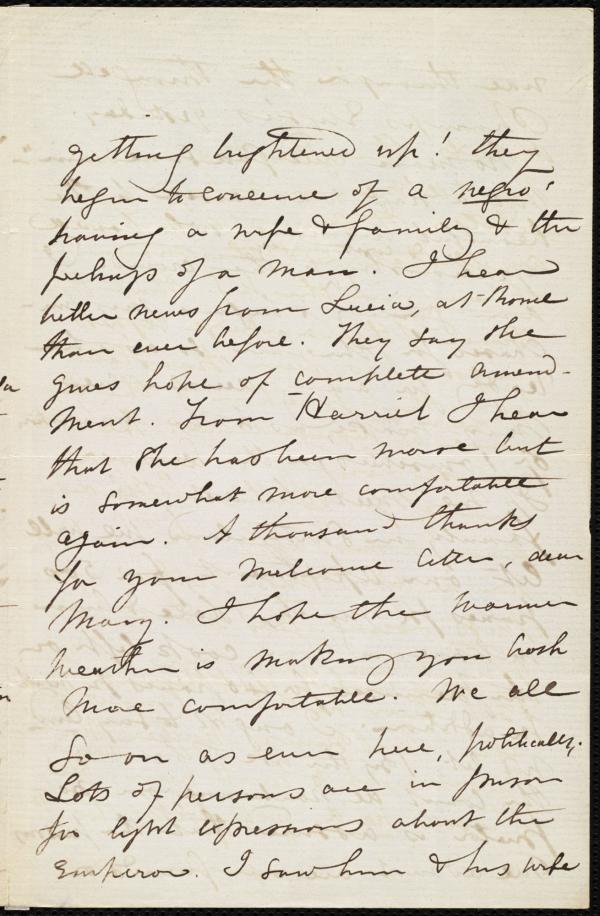 getting brightened up! they
begin to conceive of a negro'
having a wife & family & the
feelings of a man. I hear
better news from Lucia, at Rome
than ever before. They say she
gives hope of complete amend-
ment. From Harriet I hear
that she has been worse but
is somewhat more comfortable
again. A thousand thanks
for your welcome letter, dear
Mary. I hope the warmer
weather is making you both
more comfortable. We all
go on as ever here, politically.
Lots of persons are in prison
for light expressions about the
Emperor. I saw him & his wife